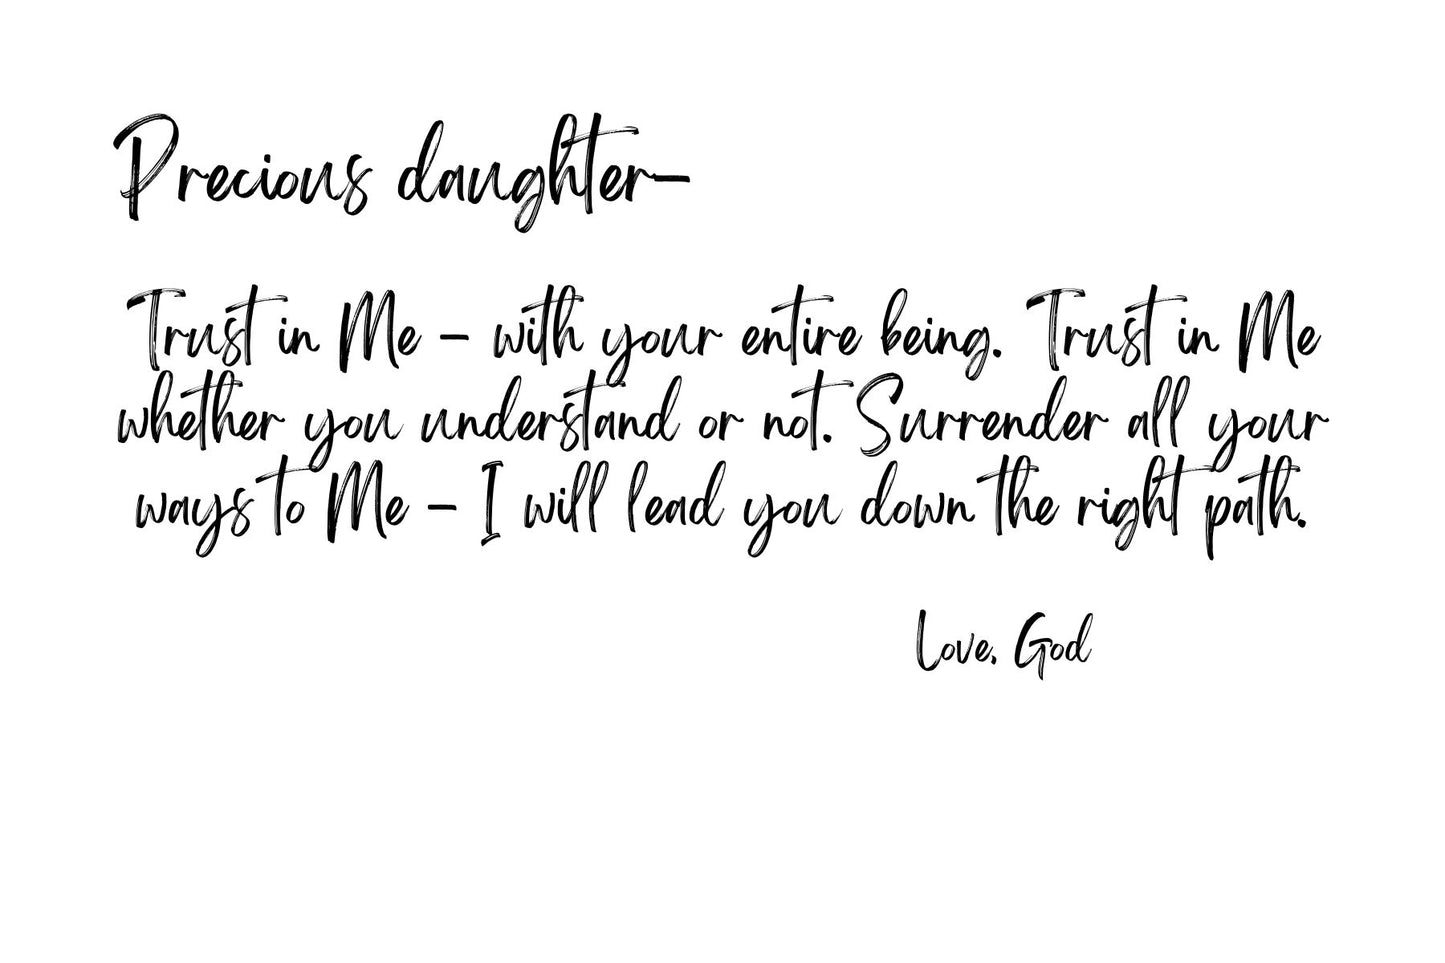 Precious daughter-
Trust in Me - with your entire being. Trust in Me
whether you understand or not. Surrender all your
ways to Me - I will lead you down the right path.
Love, God